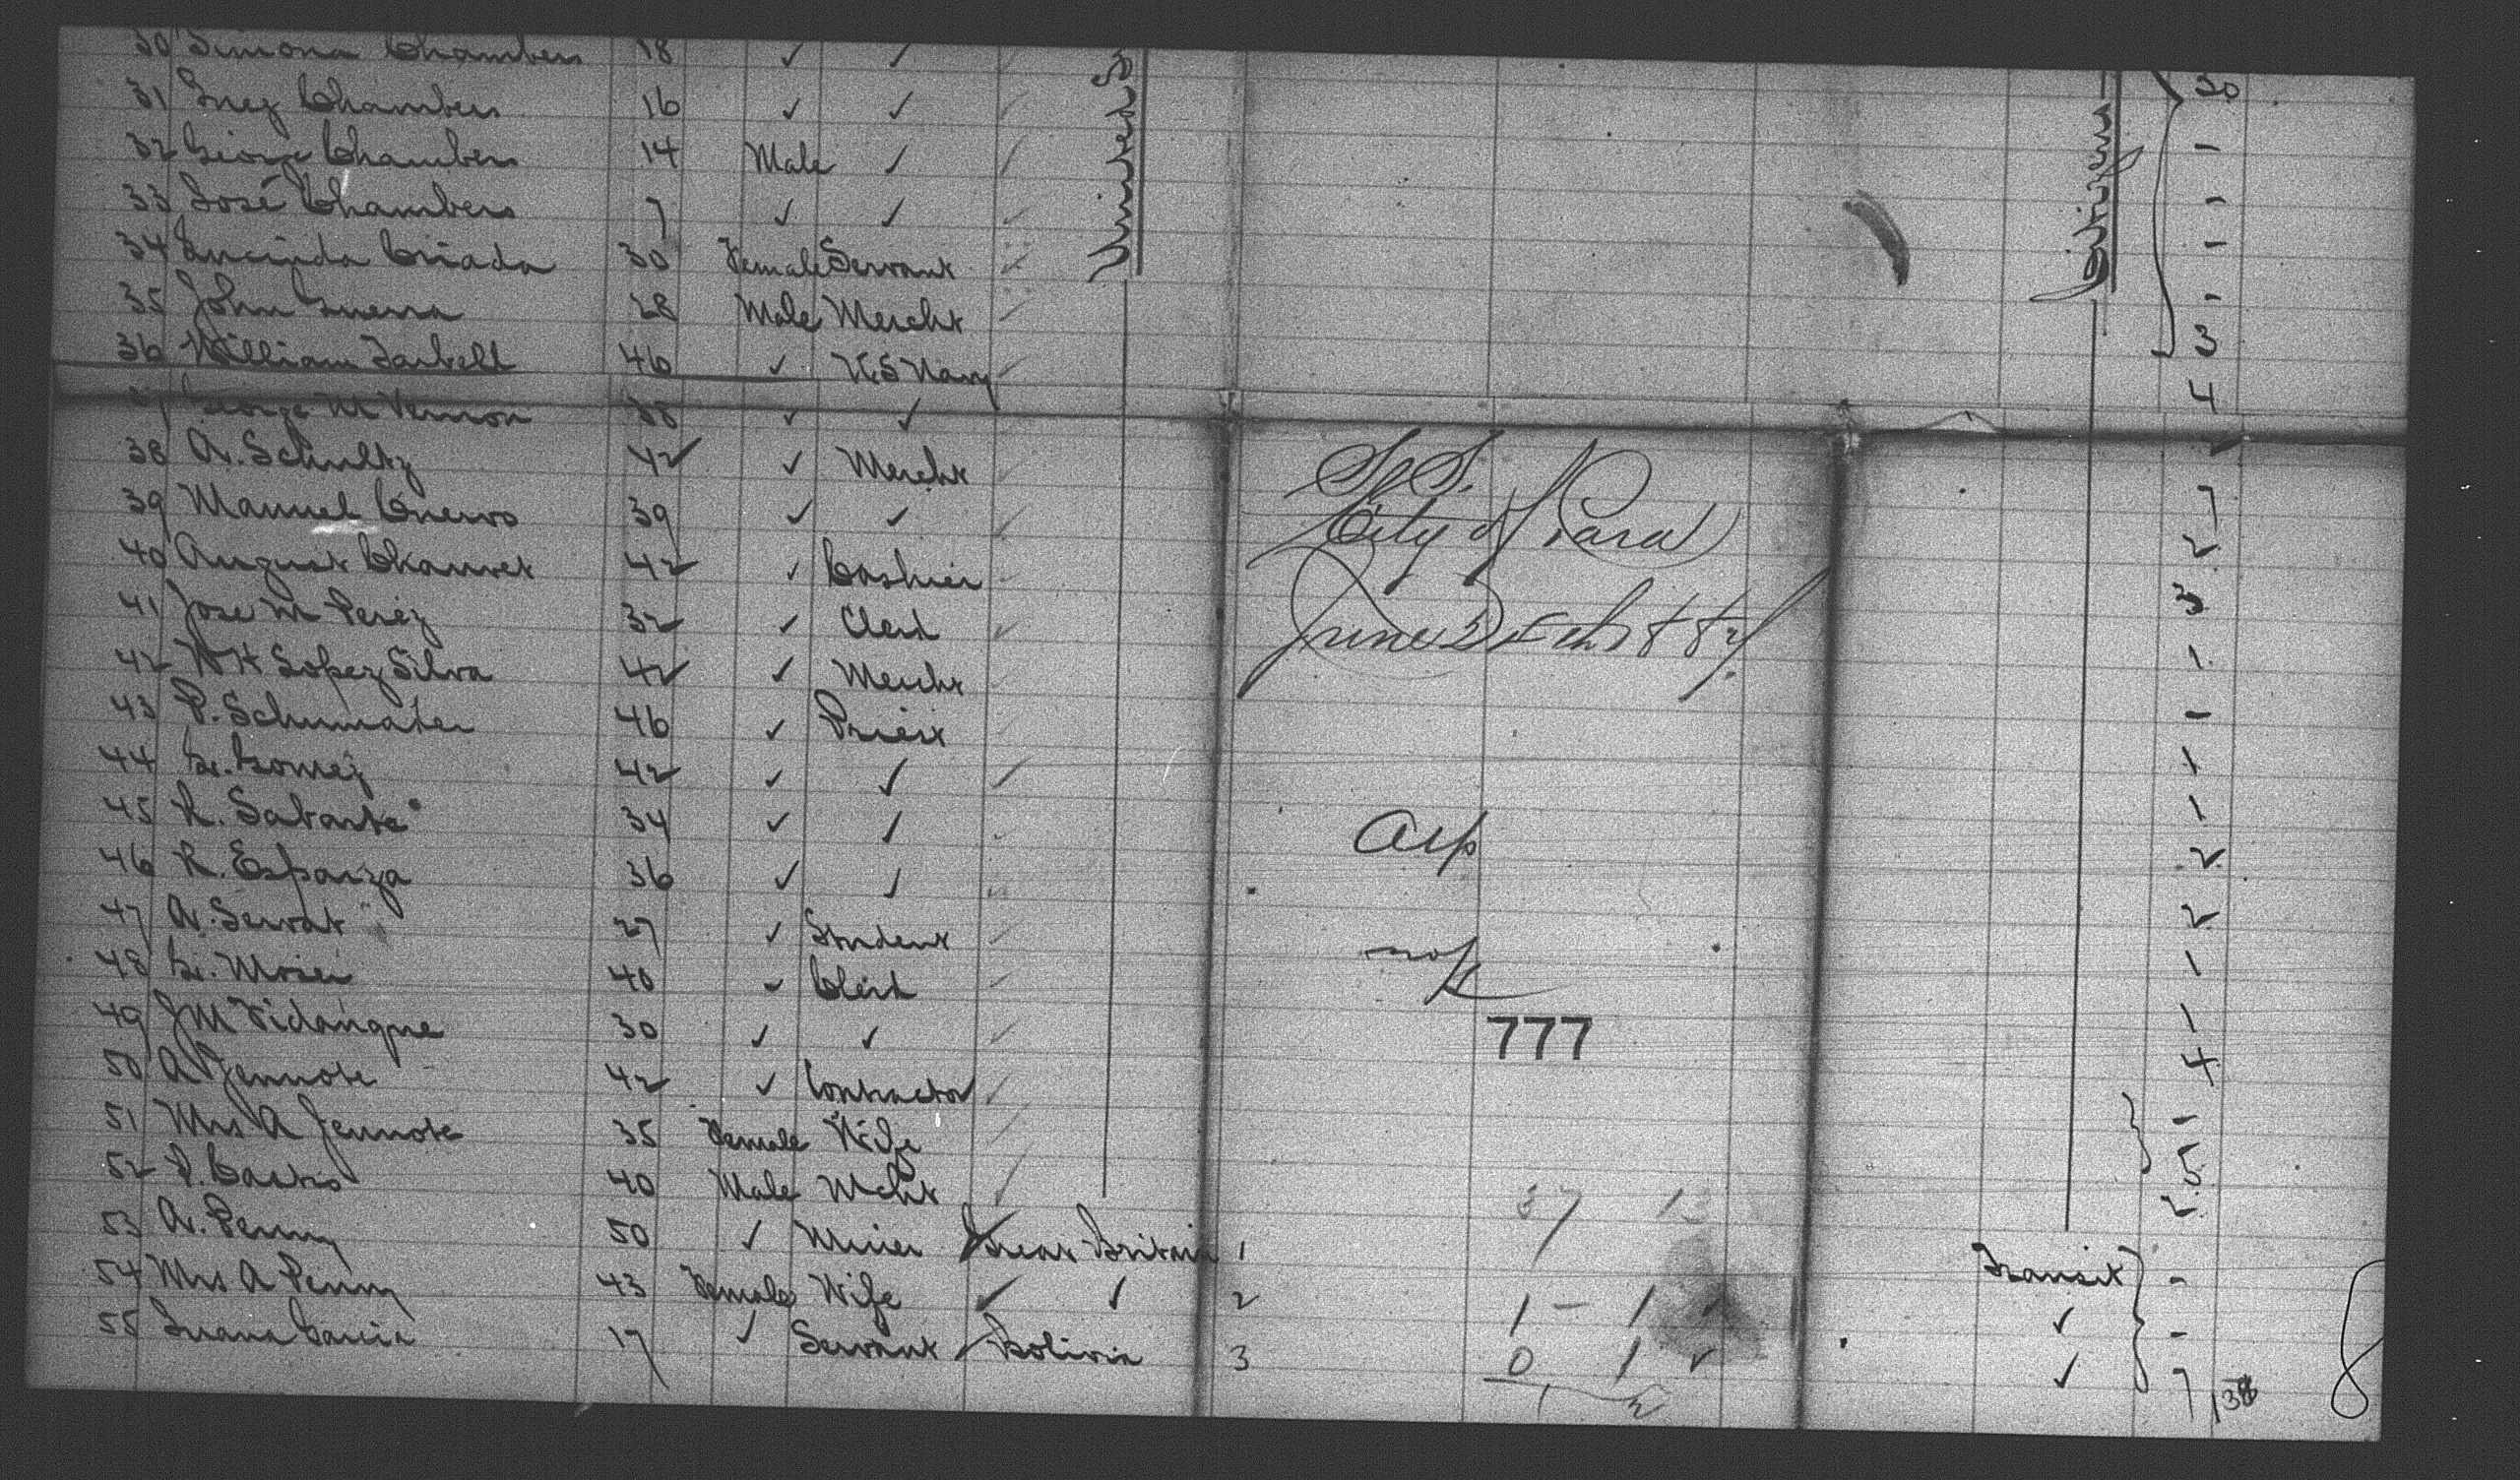 30 Simona Chambers 18 ✓ ✓ 30
31 Inez Chambers 16 ✓ ✓ -
32 George Chambers 14 Male ✓ -
33 José Chambers 7 ✓ ✓ -
34 Lucinda Criada 30 Female Servant -
35 John Guerra 28 Male Mercht 3
36 William Tarbell 46 ✓ U.S Navy 4
37 George M Vernon 38 ✓ ✓
38 A. Schultz 42 ✓ Mercht 7
39 Manuel Cuervo 39 ✓ ✓ 2
40 August Chauvet 42 ✓ Cashier 3
41 Jose M Perez 32 ✓ Clerk 1
42 W H Lopez Silva 42 ✓ Mercht -
43 P. Schumaker 46 ✓ Priest 1
44 G. Gomez 42 ✓ ✓ 1
45 R. Sabarte 34 ✓ ✓ 2
46 R. Esparza 36 ✓ ✓ 2
47 A. Servat 27 ✓ Student 1
48 G. Mosier 40 ✓ Clerk 1
49 J M Vidangne 30 ✓ ✓ 4
50 A Jennote 42 ✓ Contractor -
51 Mrs A Jennote 35 Female Wife 5
52 P. Castro 40 Male Mcht 2
53 A. Penny 50 ✓ Miner Great Britain 1 Transit -
54 Mrs A Penny 43 Female Wife ✓ ✓ 2 ✓ -
55 Juana Garcia 17 ✓ Servant Bolivia 3 ✓ 7
138
8
United S
Citizens
S.S.
City of Para
June
777
1 - 1 ✓
0 1 ✓